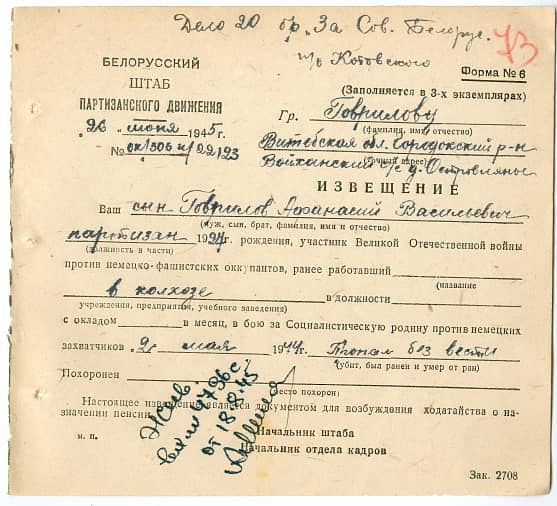 Дело 20 бр. За Сов. Белорус.
73
п/о Котовского
БЕЛОРУССКИЙ
ШТАБ
ПАРТИЗАНСКОГО ДВИЖЕНИЯ
Форма № 6
(Заполняется в 3-х экземплярах)
"26" июня 1945г.
Гр. Говрилову
(фамилия, имя, отчество)
№
Витебская обл. Городокский р-н
Войханский с/с д. Островляны
(точный адрес)
ИЗВЕЩЕНИЕ
Ваш сын Говрилов Афанасий Васильевич
(муж, сын, брат, фамилия, имя и отчество)
партизан 1924 г. рождения, участник Великой Отечественной войны
(должность в части)
против немецко-фашистских оккупантов, ранее работавший
(название
в колхозе в должности
учреждения, предприятия, учебного заведения)
с окладом в месяц, в бою за Социалистическую родину против немецких
захватчиков 2 мая 1944 г. Пропал без вести
(убит, был ранен и умер от ран)
Похоронен
(место похорон)
Настоящее извещение является документом для возбуждения ходатайства о на-
значении пенсии
Жив
от 18.8.45
Начальник штаба
м. п.
Начальник отдела кадров
Зак. 2708